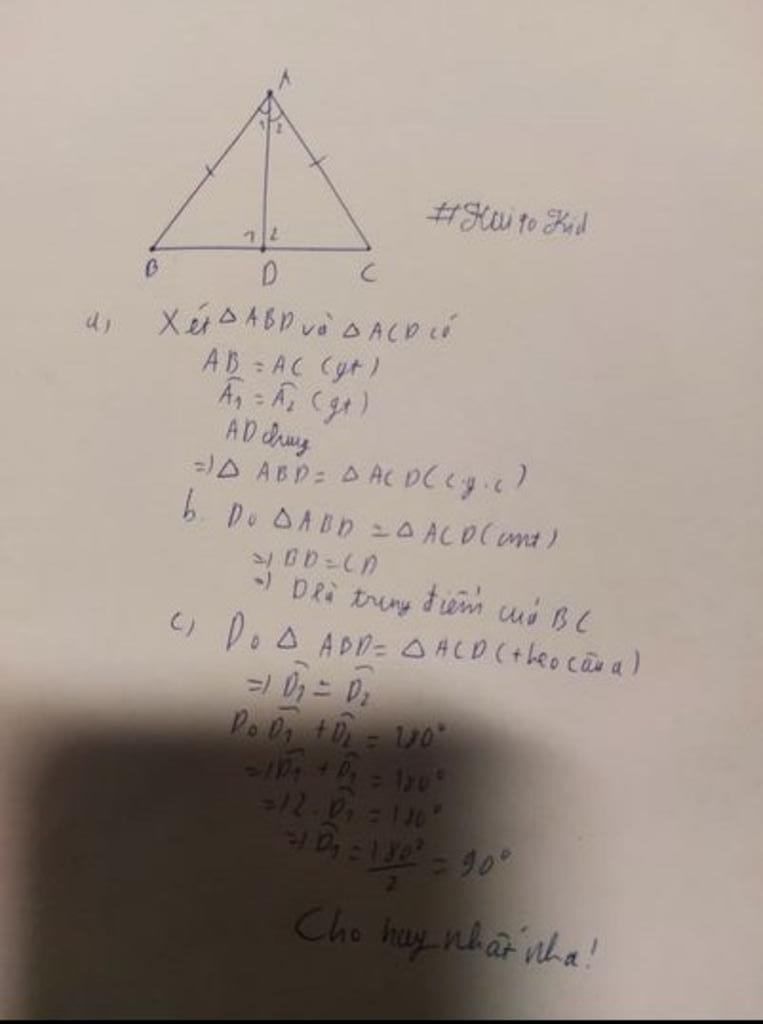 A
1 2
#Kaito Kid
1 2
B D C
a, Xét △ABD và △ACD có
AB = AC (gt)
Â₁ = Â₂ (gt)
AD chung
=) △ ABD = △ ACD (c.g.c)
b. Do △ABD = △ACD (cmt)
=) BD = CD
=) D là trung điểm của BC
c, Do △ ABD = △ ACD (theo câu a)
=) D̂₁ = D̂₂
Do D̂₁ + D̂₂ = 180°
=) D̂₁ + D̂₁ = 180°
=) 2. D̂₁ = 180°
=) D̂₁ = 180°/2 = 90°
Cho hay nhất nha!